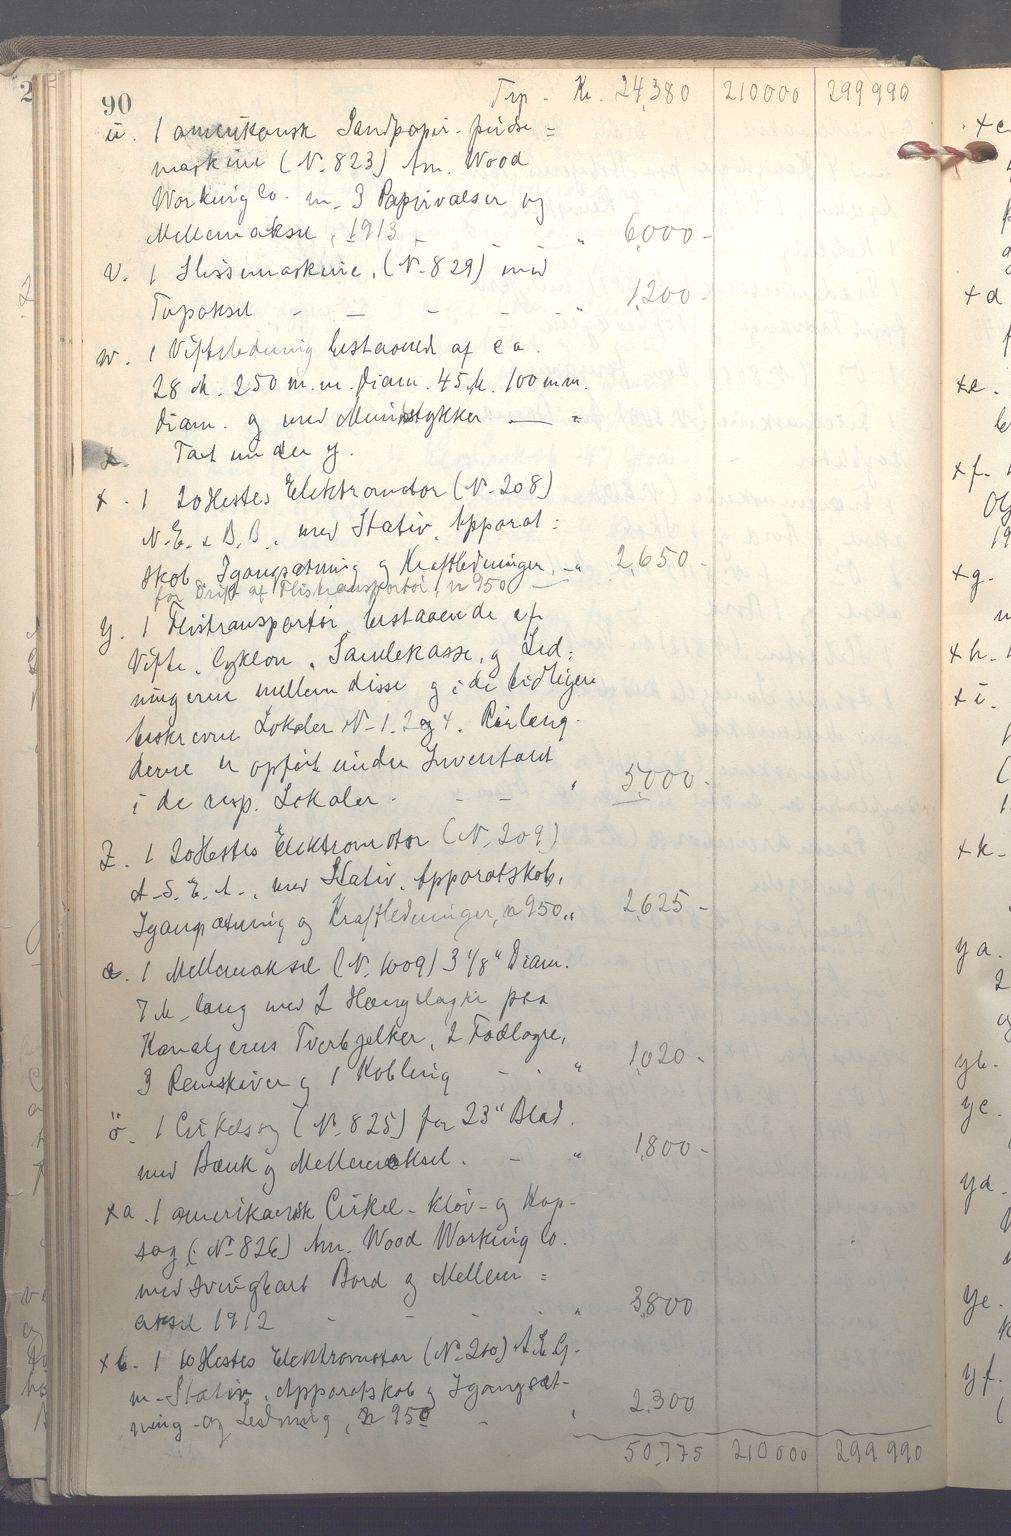 90
Trp - Kr. 24,380 210000 299990
ü. 1 amerikansk Sandpapir-pudse=
maskine (N. 823) Am. Wood
Working Co. m. 3 Papirvalser og
Mellemaksel, 1913 - - - „ 6,000 -
v. 1 Slissemaskine, (N. 829) med
Topaksel - - - - „ 1,200 -
w. 1 Vifteledning bestaaende af ca.
28 M. 250 m.m. Diam. 45 M. 100 mm.
Diam. og med Mundstykker — „
x. Tat under y.
x. 1 20 Hestes Elektromotor (N. 208)
N. E. & B. B., med Stativ, Apparat=
skab, Igangsætning og Kraftledninger, - „ 2,650 -
for Drift af Flistransportør, n 950 —
y. 1 Flistransportør bestaaende af
Vifte, Cyklon, Samlekasse, og Led=
ningerne mellem disse og i de tidligere
beskrevne Lokaler N. 1. 2 og 4. Rørlæng-
derne er opført under Inventaret
i de resp. Lokaler - - - „ 5,000 -
z. 1 20 Hestes Elektromotor (N. 209)
A. S. E. A., med Stativ, Apparatskab,
Igangsætning og Kraftledninger, n 950 „ 2,625 -
æ. 1 Mellemaksel (N. 1009) 3 1/8" Diam.
7 M. lang med 2 Hænglagre paa
Kanaljerns Tverbjelker, 2 Fodlagre,
3 Remskiver og 1 Kobling - - „ 1,020 -
ö. 1 Cirkelsag (N. 825) for 23" Blad.
med Bænk og Mellemaksel. - „ 1,800 -
xa. 1 amerikansk Cirkel- kløv- og Kap-
sag (N. 826) Am. Wood Working Co.
med svingbart Bord og Mellem=
aksel 1912 - - - „ 3,800
xb. 1 10 Hestes Elektromotor (N. 210) A. E. G.
m. Stativ, Apparatskab og Igangsæt-
ning og Ledning, n 950 - „ 2,300
50,775 210000 299990